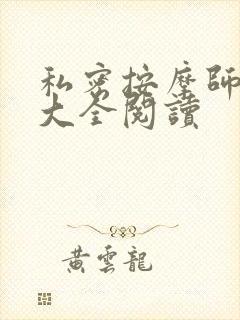 私密按摩師
大全閱讀
黃雲龍